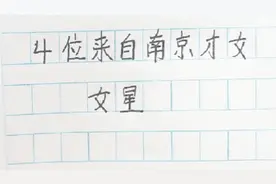 4位来自南京才文
女星